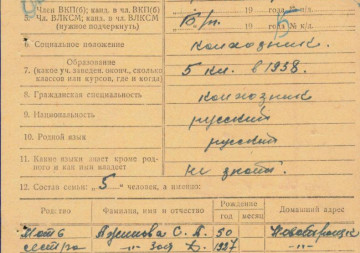 Член ВКП(б); канд. в чл. ВКП(б)
5. Чл. ВЛКСМ; канд. в чл. ВЛКСМ
(нужное подчеркнуть)
Б/п.
19 года № к/д.
6. Социальное положение
колхозник.
Образование
7. (какое уч. заведен. оконч., сколько классов или курсов, где и когда)
5 кл. в 1938.
8. Гражданская специальность
колхозник
9. Национальность
русский
10. Родной язык
русский
11. Какие языки знает кроме родного и как ими владеет
не знает.
12. Состав семьи: "5" человек, а именно:
Родство Фамилия, имя и отчество Рождение год месяц Домашний адрес
Мать С. 50
сестра -"- Зоя 1927 -"-